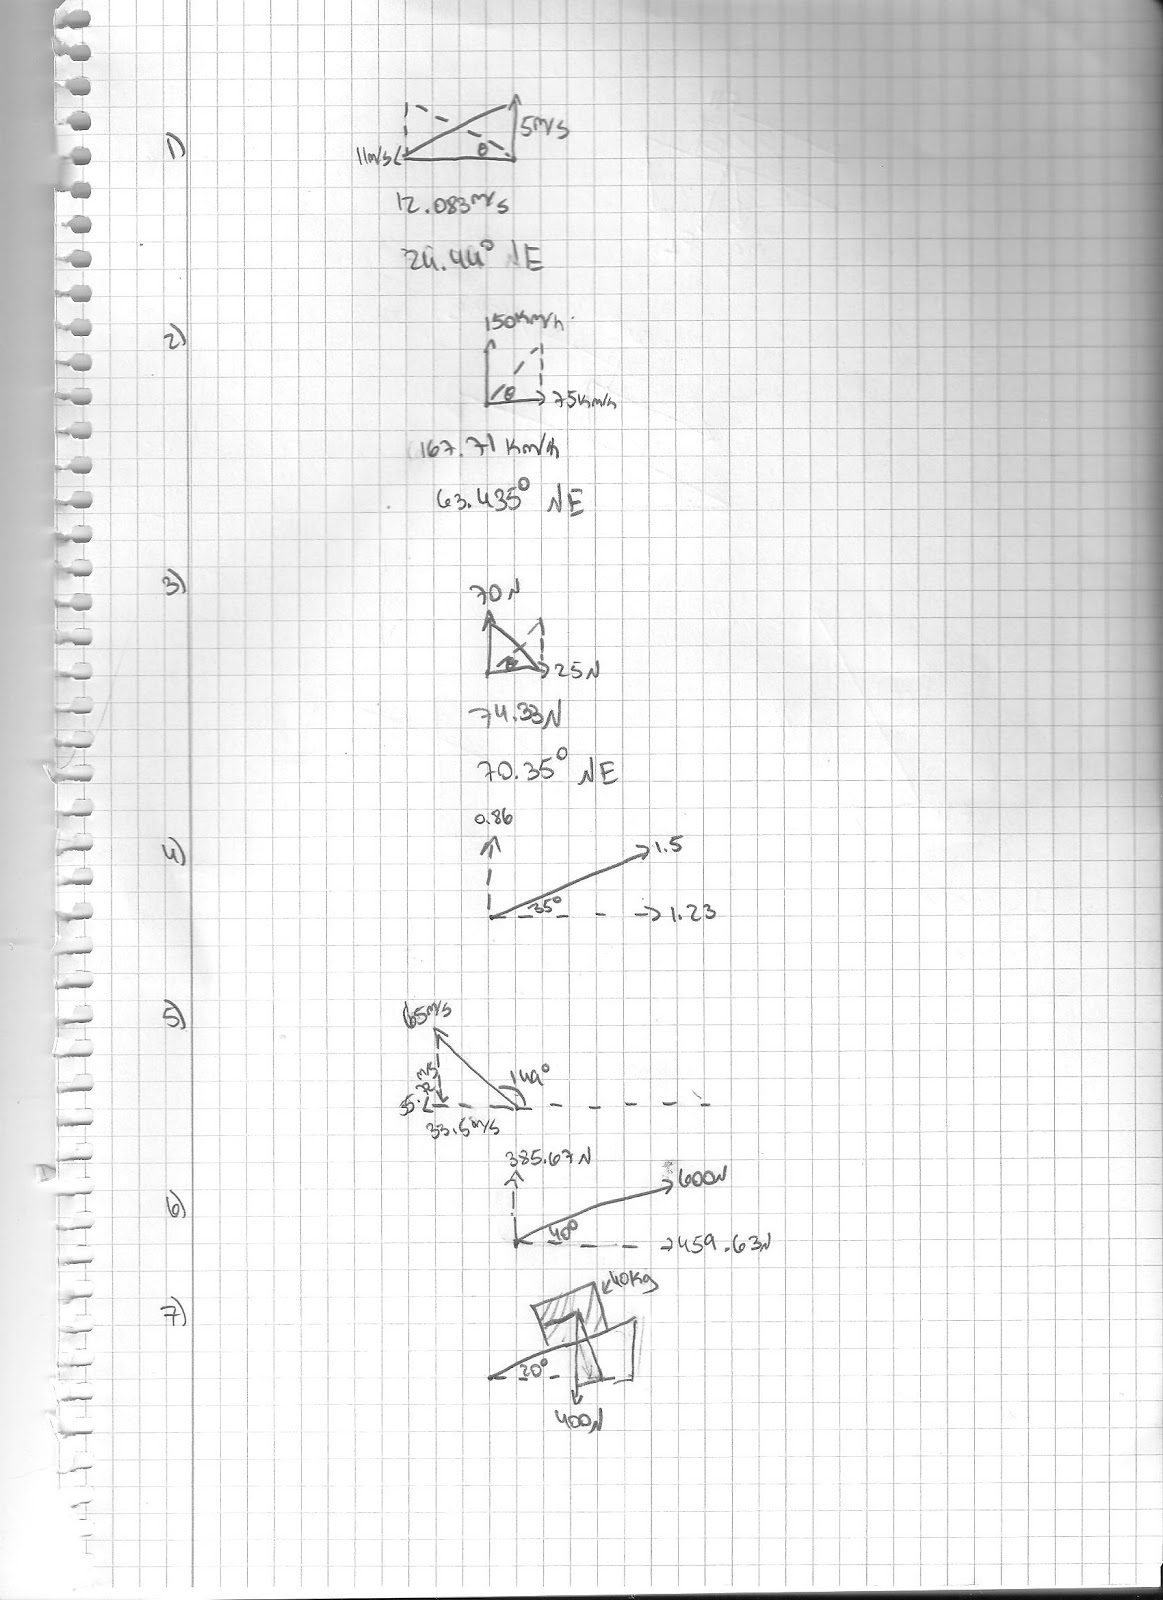 1)
5m/s
11m/s
θ
12.083m/s
24.44° NE
2)
150Km/h
θ
75Km/h
167.71 Km/h
63.435° NE
3)
70N
θ
25N
74.33N
70.35° NE
0.86
4)
1.5
35°
1.23
5)
65m/s
149°
m/s
33.5m/s
385.67N
6)
600N
40°
459.63N
40Kg
7)
20°
400N